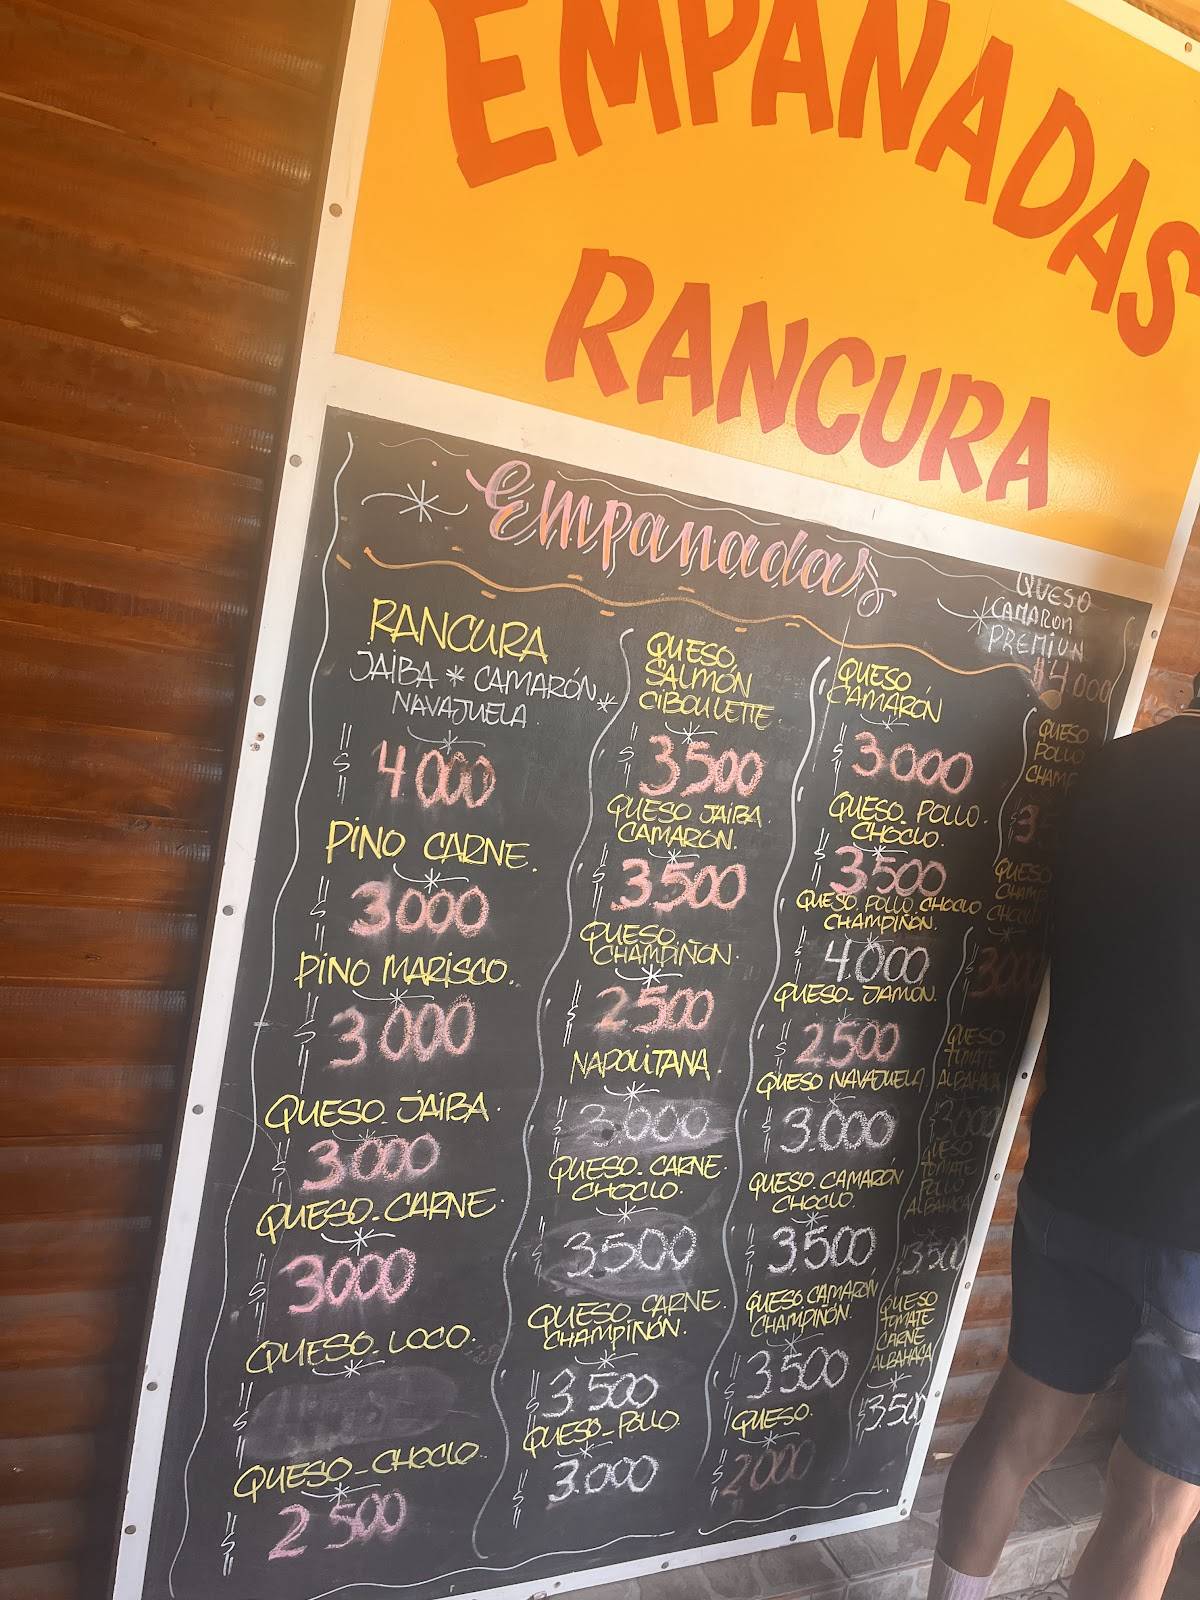 EMPANADAS
RANCURA
Empanadas
RANCURA
JAIBA * CAMARÓN *
NAVAJUELA.
$ 4.000
PINO CARNE.
$ 3000
PINO MARISCO.
$ 3.000
QUESO JAIBA.
$ 3000
QUESO-CARNE.
$ 3000
QUESO-LOCO.
$
QUESO-CHOCLO.
$ 2500
QUESO,
SALMÓN
CIBOULETTE.
$ 3.500
QUESO JAIBA.
CAMARON.
$ 3.500
QUESO
CHAMPIÑON.
$ 2500
NAPOLITANA.
$ 3.000
QUESO-CARNE-
CHOCLO.
$ 3500
QUESO CARNE.
CHAMPIÑÓN.
$ 3.500
QUESO-POLLO.
$ 3.000
QUESO,
CAMARÓN
$ 3000
QUESO-POLLO.
CHOCLO.
$ 3.500
QUESO.POLLO.CHOCLO
CHAMPIÑÓN.
$ 4.000
QUESO-JAMÓN.
$ 2500
QUESO NAVAJUELA
$ 3.000
QUESO-CAMARÓN
CHOCLO.
$ 3.500
QUESO CAMARÓN
CHAMPIÑÓN.
$ 3.500
QUESO.
$ 2000
QUESO
CAMARON
PREMIUN
$4.000
QUESO
POLLO
CHAMP
$ 3
QUESO
CHAMP
CHOCLO
$ 3000
QUESO
TOMATE
ALBAHACA
$ 3000
QUESO
TOMATE
POLLO
ALBAHACA
$ 3500
QUESO
TOMATE
CARNE
ALBAHACA
$ 3.500